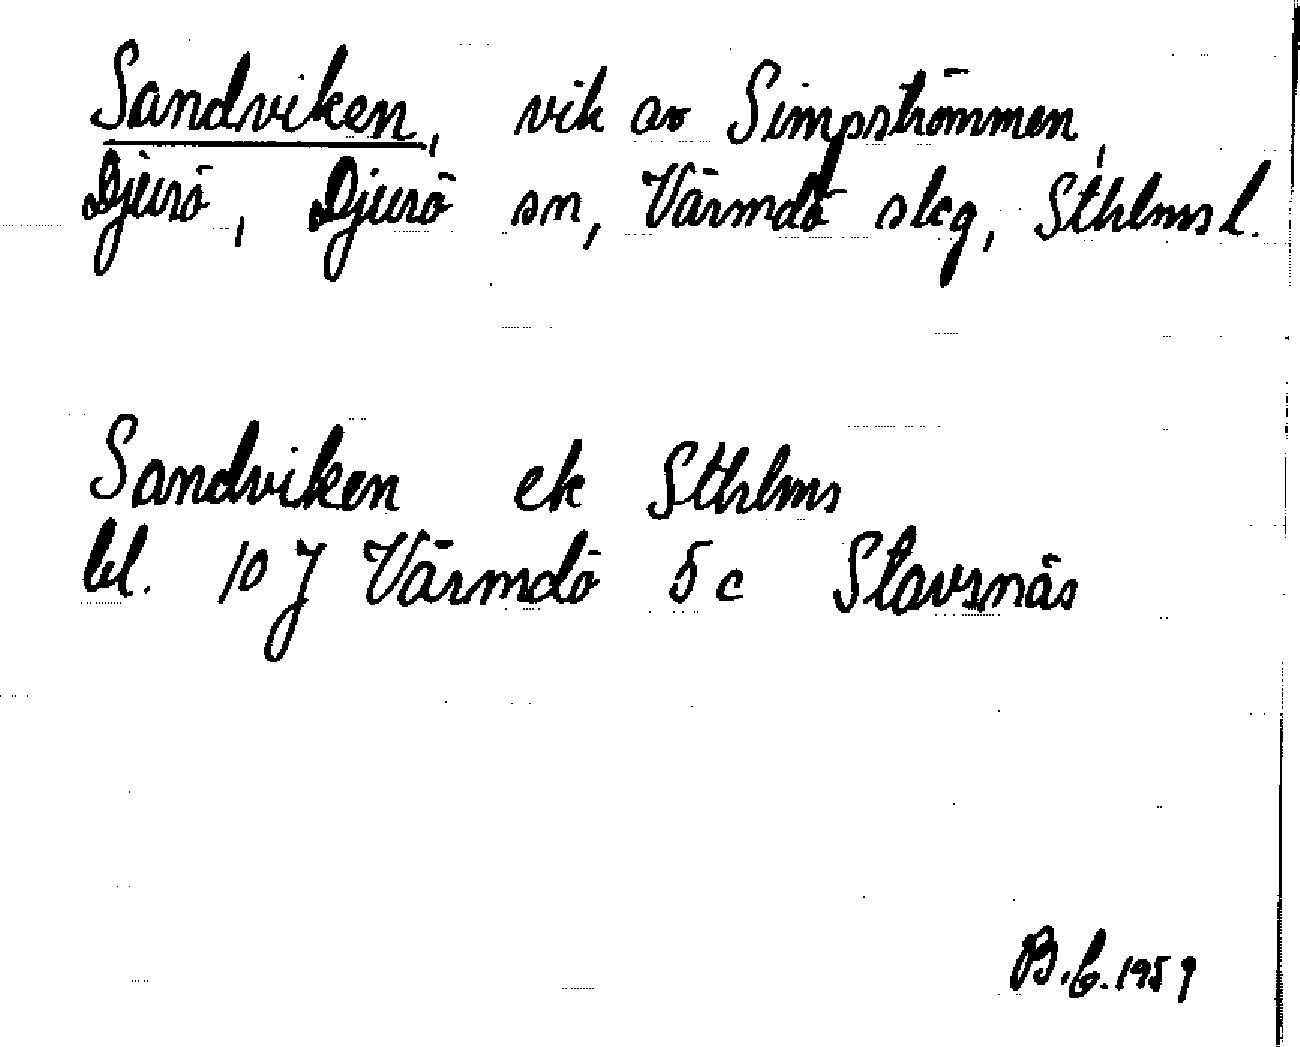 Sandviken, vik av Simpströmmen,
Djurö, Djurö sn, Värmdö skg, Sthlms l.
Sandviken ek Sthlms
bl. 10 J Värmdö 5 c Stavsnäs
B.C. 1959